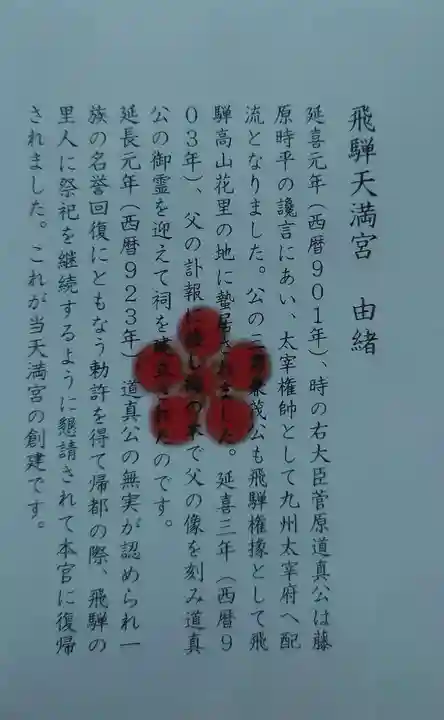 飛騨天満宮　由緒
延喜元年（西暦９０１年）、時の右大臣菅原道真公は藤
原時平の讒言にあい、太宰権帥として九州太宰府へ配
流となりました。公の三男兼茂公も飛騨権掾として飛
騨高山花里の地に蟄居されました。延喜三年（西暦９
０３年）、父の訃報に接し梅の木で父の像を刻み道真
公の御霊を迎えて祠を建立されたのです。
延長元年（西暦９２３年）道真公の無実が認められ一
族の名誉回復にともなう勅許を得て帰都の際、飛騨の
里人に祭祀を継続するように懇請されて本宮に復帰
されました。これが当天満宮の創建です。